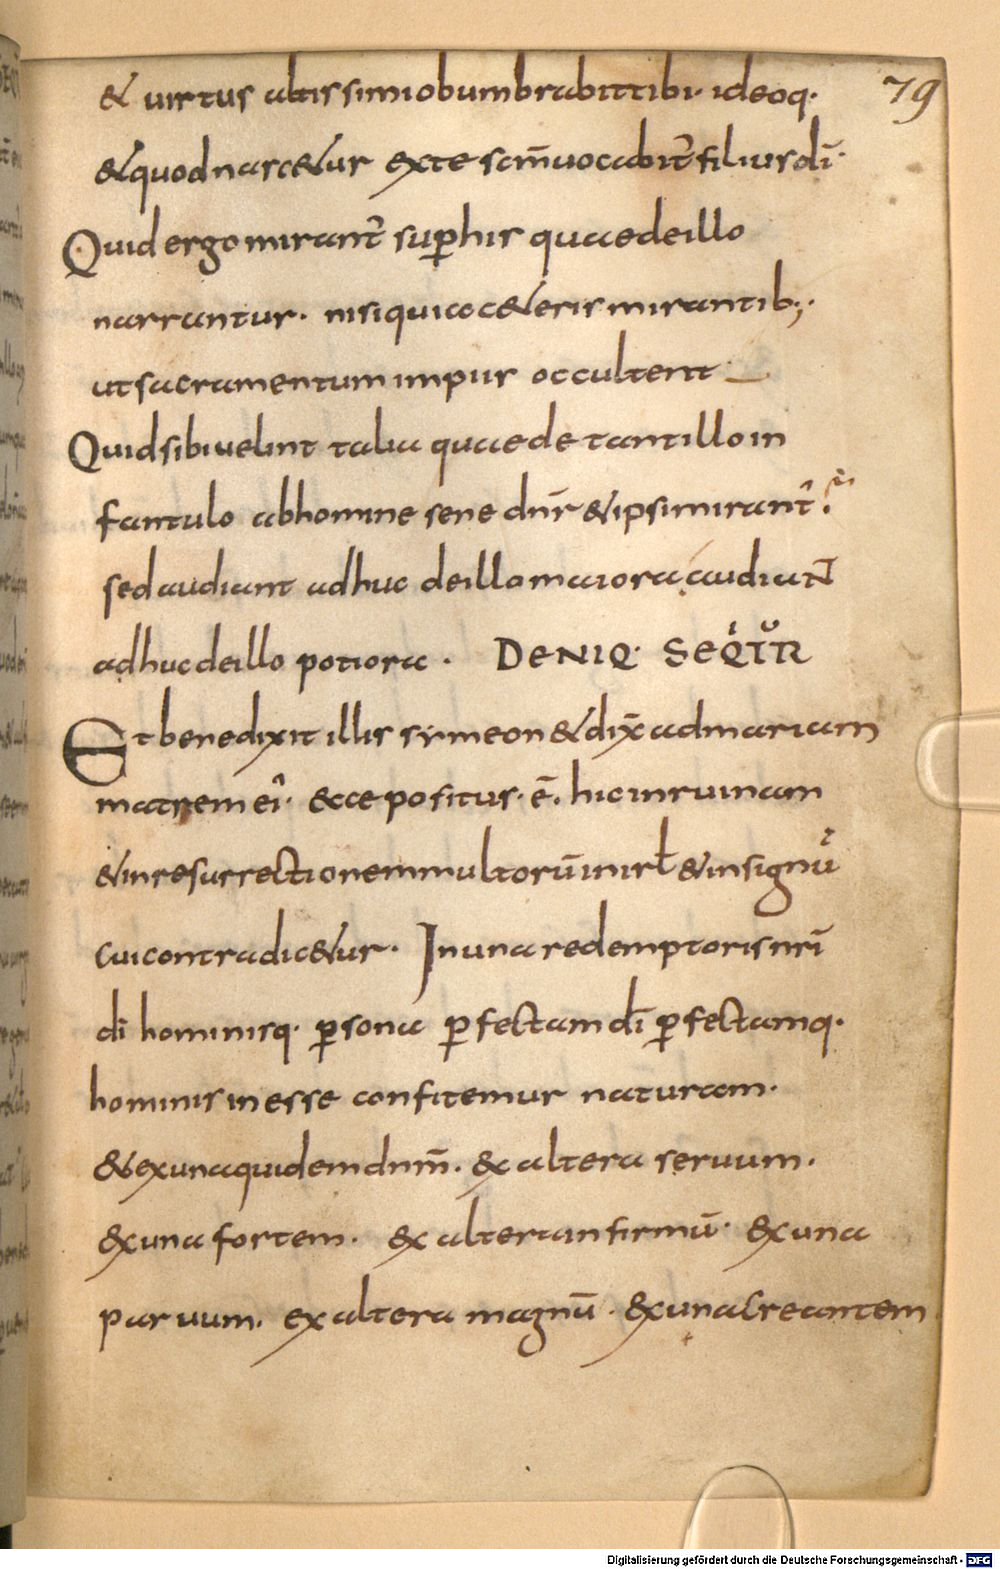 & uirtus altissimi obumbrabit tibi· ideoq·
79
& quod nasc&ur exte scm̄ uocabit̄ filius dī·
Quid ergo mirant̄ sup his quae de illo
narrantur· nisi qui ac c&eris mirantib;·
ut sacramentum impiis occultent
Quid sibi uelint talia quae de tantillo in
fantulo ab homine sene dn̄r & ipsi mirant̄·
sed audiant adhuc de illo maiora audiant
adhuc de illo potiora· DENIQ· SEQITUR
Et benedixit illis symeon & dix̄ ad mariam
matrem ei· ecce positus· ē· hic in ruinam
& in resurrectionem multorū in isrl & in signū
cui contradic&ur· In una redemptoris nr̄i
dī hominisq· psona pfectam dī pfectamq·
hominis inesse confitemur naturam·
& ex una quidem dnm̄· ex altera seruum·
ex una fortem· ex altera infirmū· ex una
paruum· ex altera magnū· ex una creantem
Digitalisierung gefördert durch die Deutsche Forschungsgemeinschaft - DFG